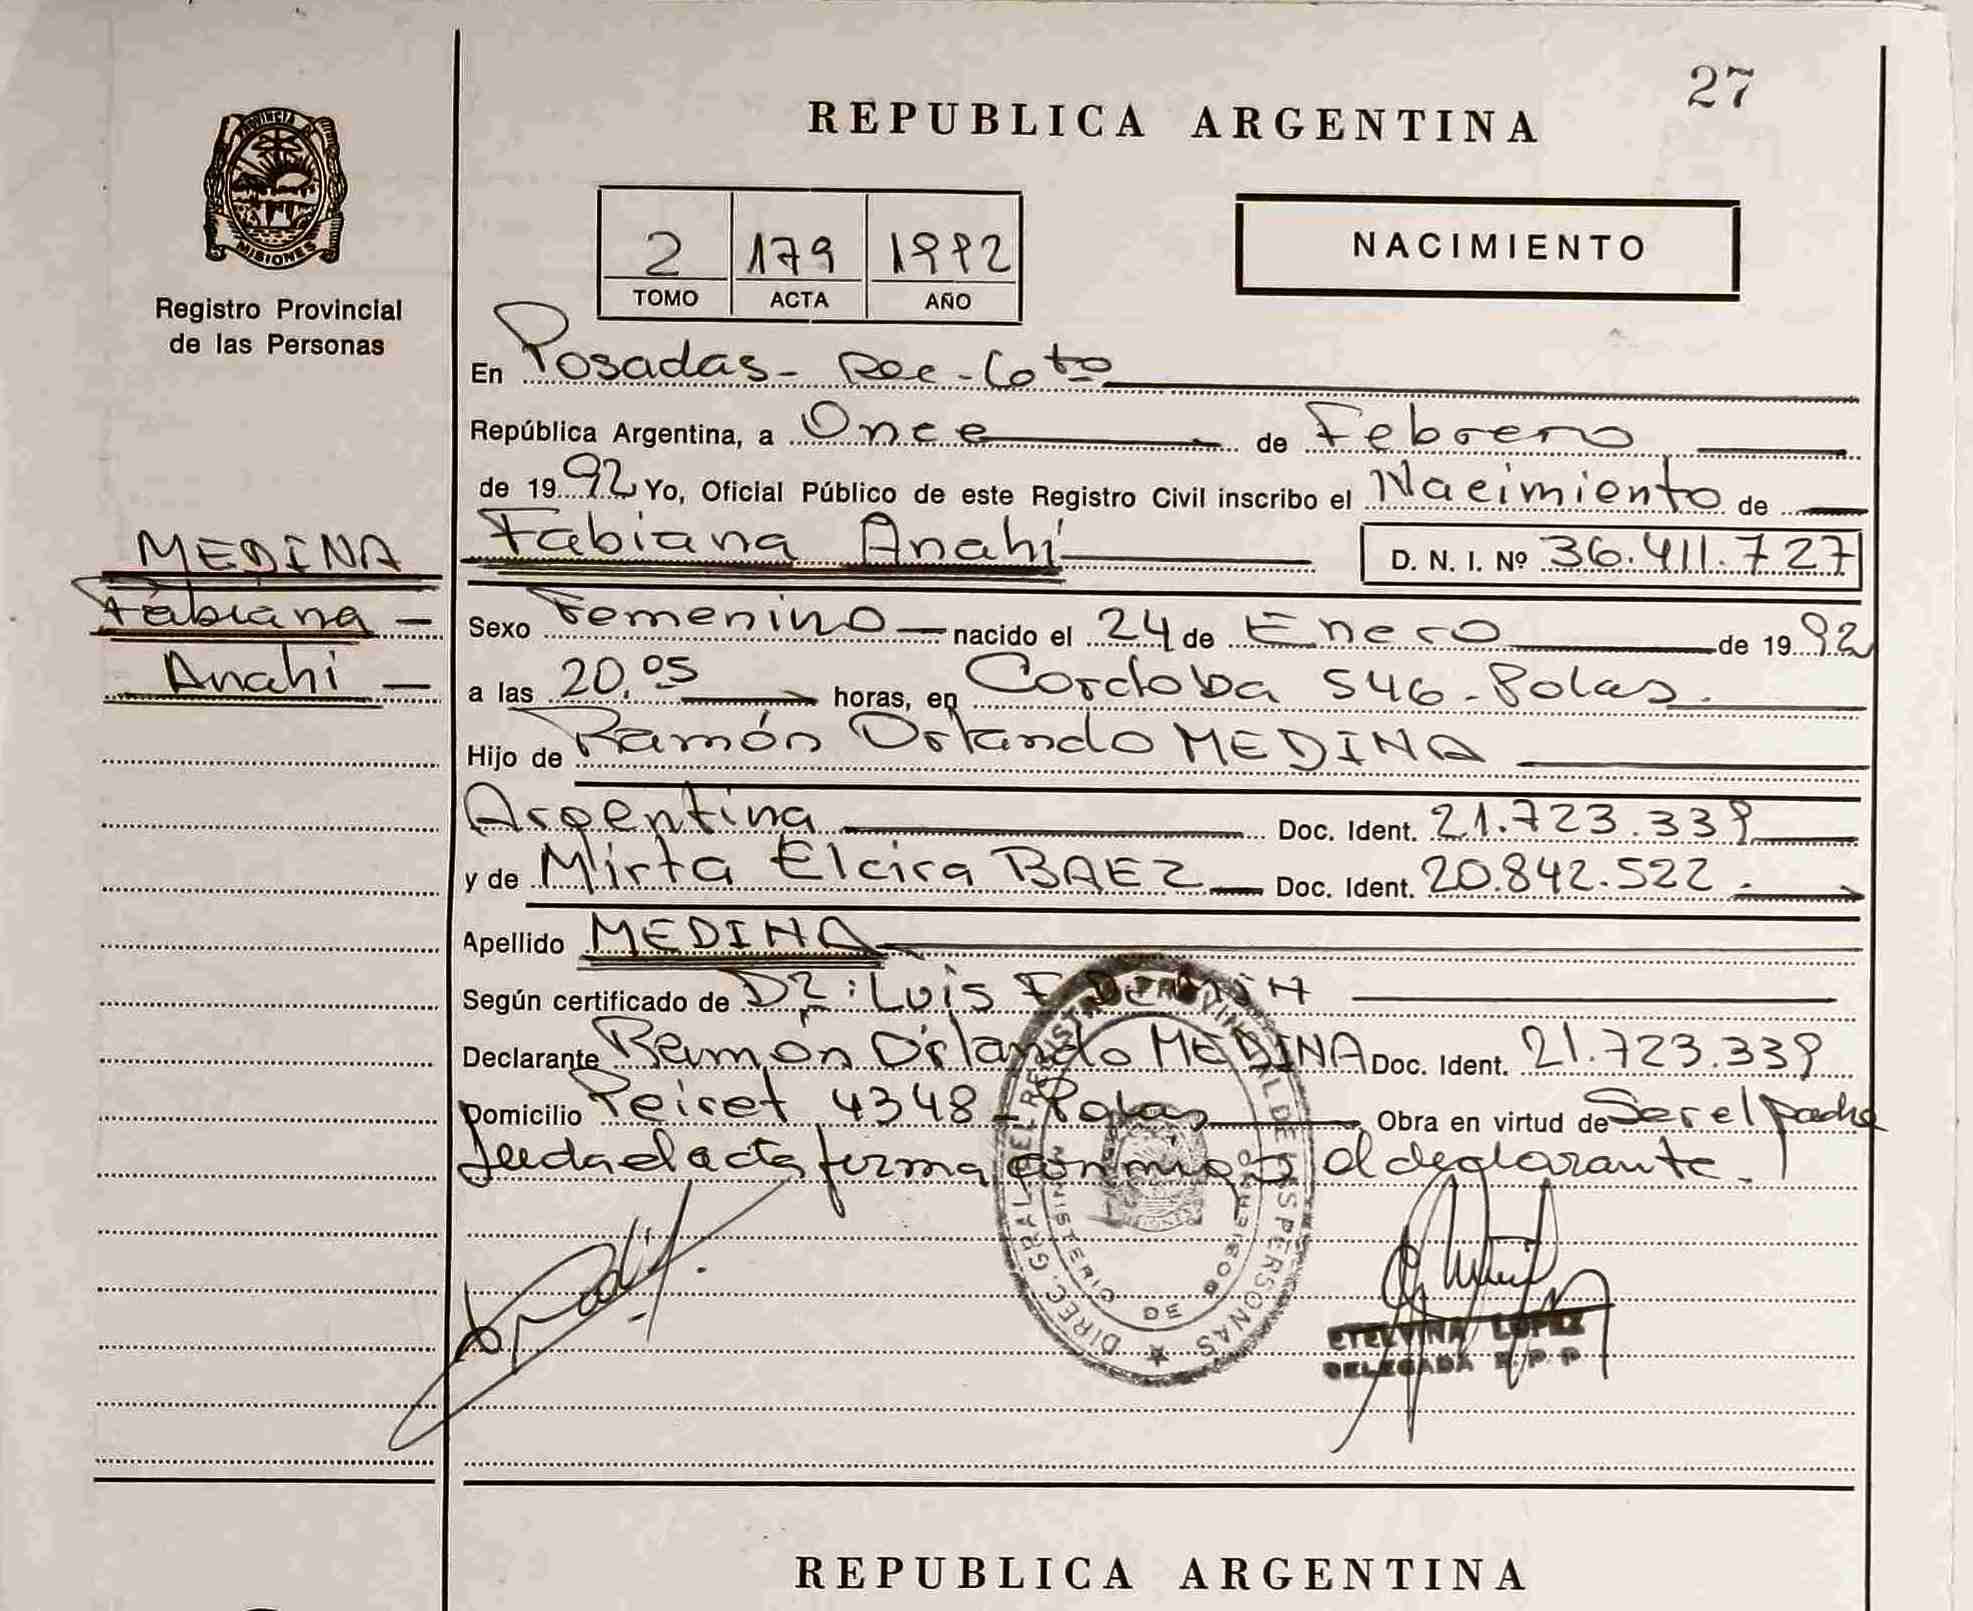 27
REPUBLICA ARGENTINA
PROVINCIA D
MISIONES
Registro Provincial
de las Personas
2 179 1992
TOMO ACTA AÑO
NACIMIENTO
En Posadas - Dpto
República Argentina, a Once de Febrero
de 1992 Yo, Oficial Público de este Registro Civil inscribo el Nacimiento de
MEDINA
Fabiana -
Anahi -
Fabiana Anahí D. N. I. Nº 36.411.727
Sexo Femenino - nacido el 24 de Enero de 1992
a las 20,05 horas, en Cordoba 546 - Pdas.
Hijo de Ramón Orlando MEDINA
Argentina Doc. Ident. 21.723.339
y de Mirta Elcira BAEZ Doc. Ident. 20.842.522.
Apellido MEDINA
Según certificado de Dr: Luis F
Declarante Ramón Orlando MEDINA Doc. Ident. 21.723.339
Domicilio 4348 - Pdas Obra en virtud de Ser el padre
Leida el acta firma conmigo el declarante.
DIREC. GRAL DEL REGISTRO PROVINCIAL DE LAS PERSONAS
MINISTERIO DE GOBIERNO
ETELVINA LOPEZ
DELEGADA R.P.P
REPUBLICA ARGENTINA